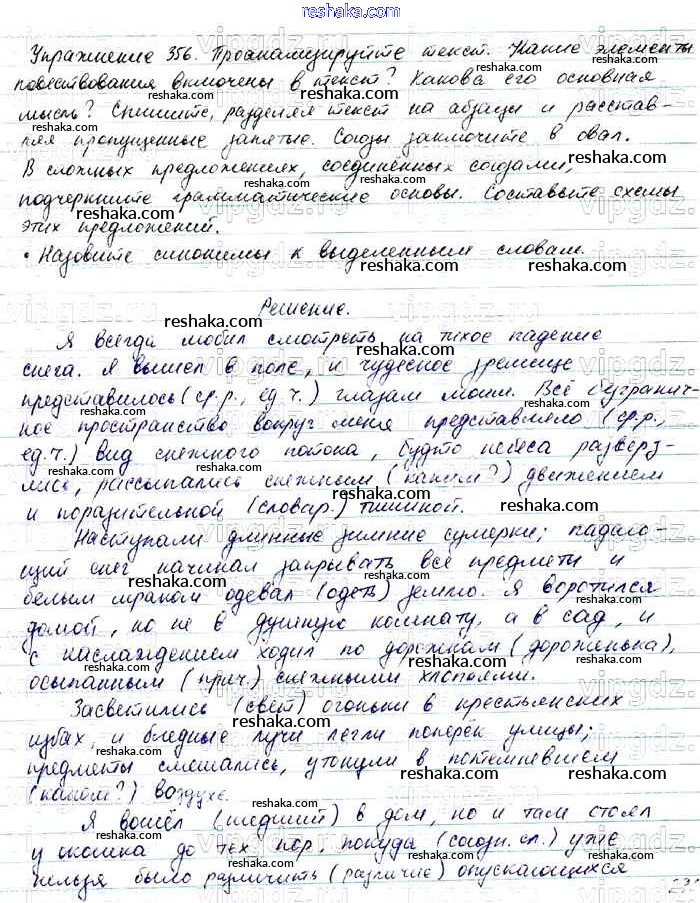 reshaka.com
Упражнение 356. Проанализируйте текст. Какие элементы
повествования включены в текст? Какова его основная
мысль? Спишите, разделяя текст на абзацы и расстав-
ляя пропущенные запятые. Союзы заключите в овал.
В сложных предложениях, соединённых союзами,
подчеркните грамматические основы. Составьте схемы
этих предложений.
• Назовите синонимы к выделенным словам.
Решение.
Я всегда любил смотреть на тихое падение
снега. Я вышел в поле, и чудесное зрелище
представилось (ср.р., ед.ч.) глазам моим. Всё безгранич-
ное пространство вокруг меня представляло (ср.р.,
ед.ч.) вид снежного потока, будто небеса разверз-
лись, рассыпались снежным (каким?) движением
и поразительной (словар.) тишиной.
Наступали длинные зимние сумерки; падаю-
щий снег начинал закрывать все предметы и
белым мраком одевал (одеть) землю. Я воротился
домой, но не в душную комнату, а в сад, и
с наслаждением ходил по дорожкам (дороженька),
осыпанным (прич.) снежными хлопьями.
Засветились (свет) огоньки в крестьянских
избах, и бледные лучи легли поперёк улицы;
предметы смешались, утонули в потемневшем
(каком?) воздухе.
Я вошёл (шедший) в дом, но и там стоял
у окошка до тех пор, покуда (союзн. сл.) уже
нельзя было различить (различие) опускающихся